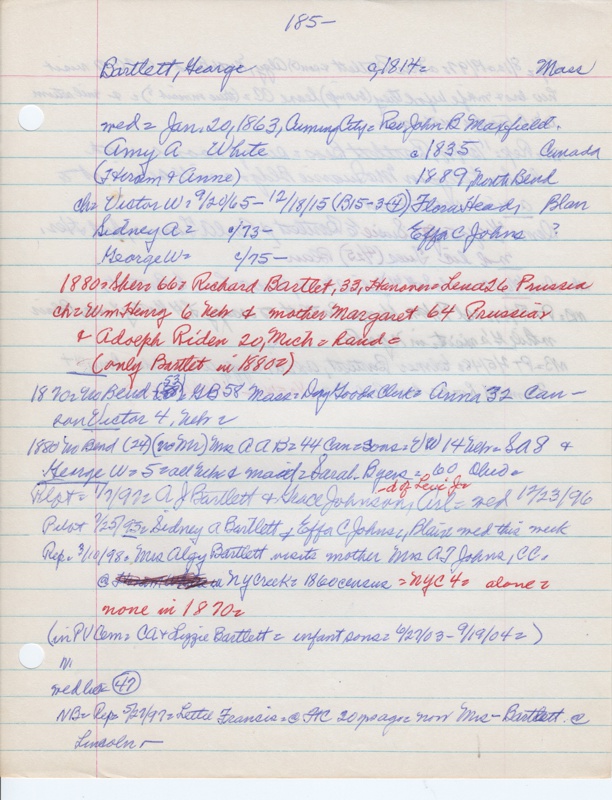 185-
Bartlett, George c1814= Mass
med = Jan. 20, 1863, Cuming City = Rev John B Maxfield.
Amy A White c1835 Canada
(Hiram & Anne) 1889, North Bend
ch = Victor W = 9/20/65 - 12/18/15 (B15-3-4) Flora Head, Blair
Sidney A = c/73- Effa C Johns ?
George W = c/75-
1880 = Sher = 66 = Richard Bartlet, 33, Hanover = Lena 26 Prussia
ch = Wm Henry 6 Neb & mother Margaret 64 Prussia,
& Adolph Riden 20, Mich = hand =
(only Bartlet in 1880=)
1870 = No Bend GB 58 Mass = Dry Goods Clerk = Anna 32 Can -
son Victor 4, Neb =
1880 No Bend (24) (no Mr) Mrs A A B = 44 Can = sons = VW 14 Neb = SA 8 &
George W = 5 = all Neb & maid = Sarah Byers = 60, Ohio =
d of Levi Jo=
Pilot = 1/7/97 = A J Bartlett & Grace Johnson, Arl = med 12/23/96
Pilot 7/25/95 = Sidney A Bartlett & Effa C Johns, Blair med this week
Rep. 3/10/98 = Mrs Algy Bartlett visits mother Mrs A T Johns, CC.
@ NY Creek = 1860 census = NYC 4 = alone =
none in 1870=
(in PV Cem = CA & Lizzie Bartlett = infant sons = 6/27/03 - 9/19/04 = )
N
med lic = 47
NB = Rep = 5/27/97 = Lettie Francis = @ AC 20 yrs ago = now Mrs - Bartlett @
Lincoln -